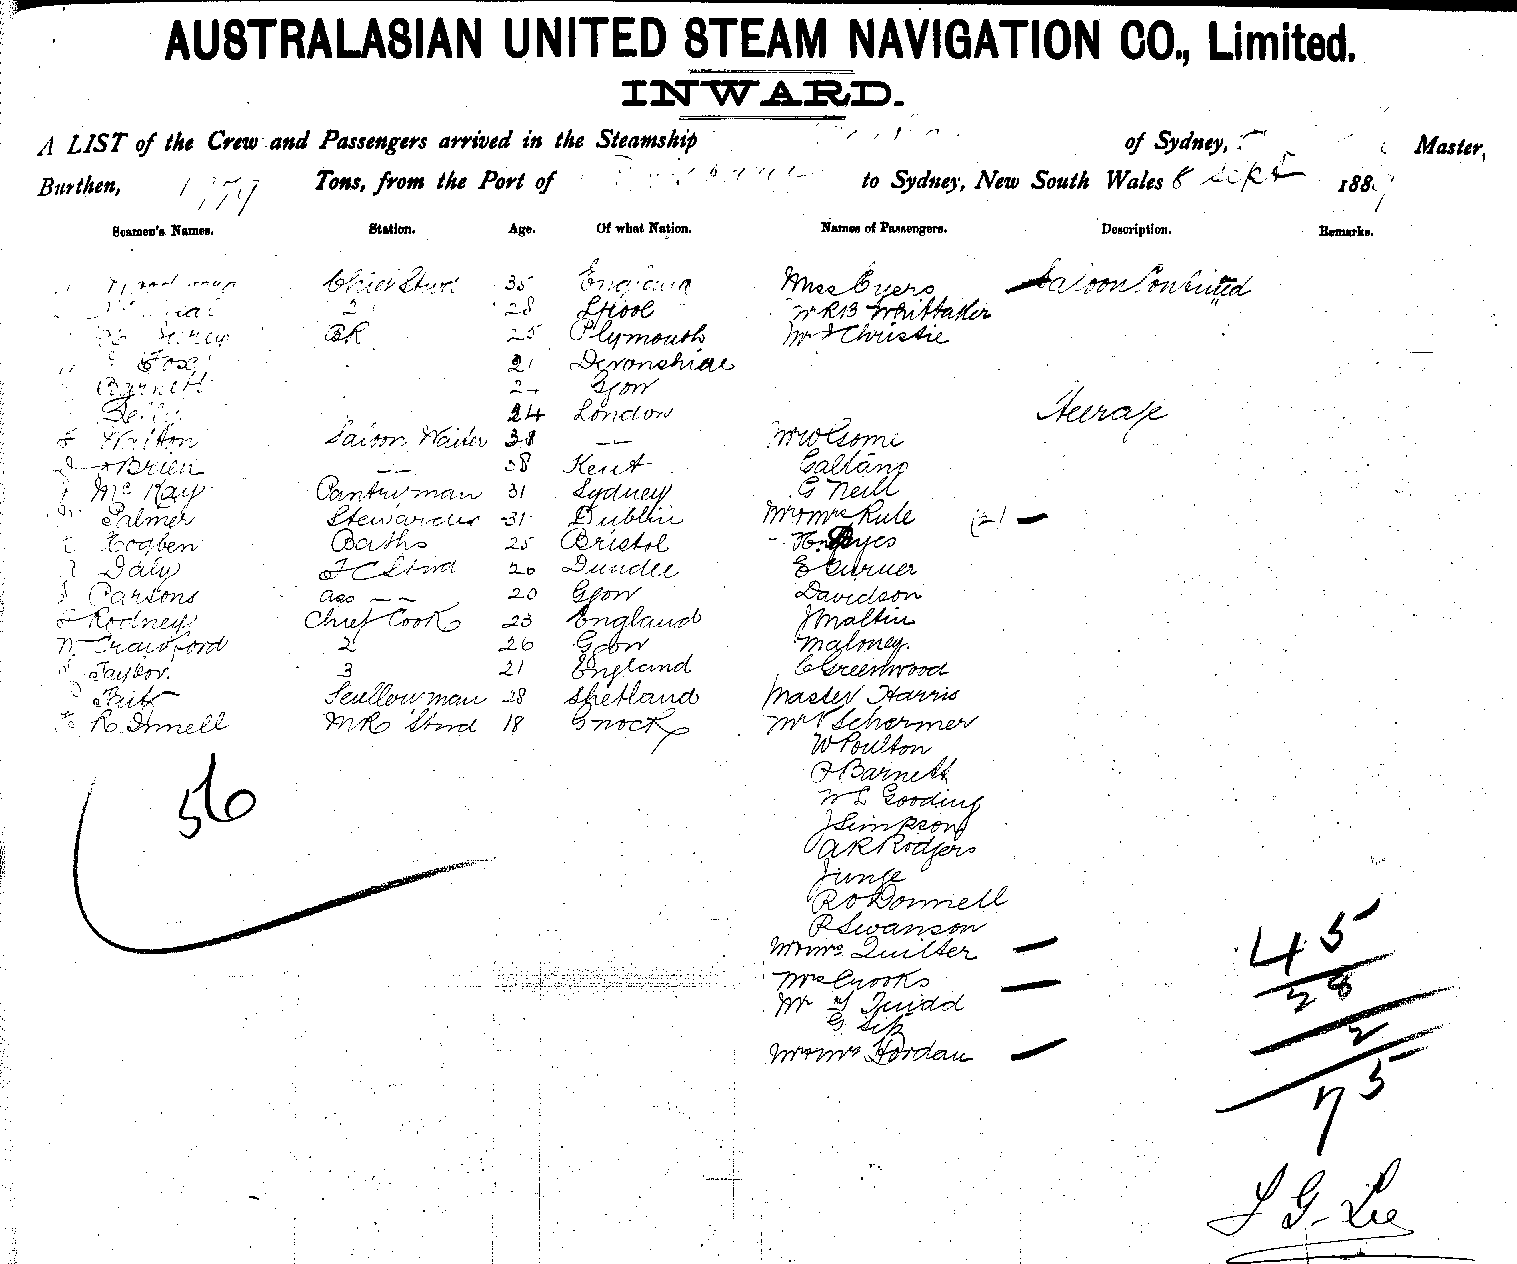 AUSTRALASIAN UNITED STEAM NAVIGATION CO., Limited.
INWARD.
A LIST of the Crew and Passengers arrived in the Steamship of Sydney, Master,
Burthen, Tons, from the Port of Brisbane to Sydney, New South Wales 8 Sept 188
Seamen's Names. Station. Age. Of what Nation. Names of Passengers. Description. Remarks.
Chief Stwd 35 England Miss Byers Saloon Continued
2 28 L'pool W R B Whittaker
BR 25 Plymouth Mr J Christie
Fox 21 Devonshire
Barnett 2 Ggow
Reilly 24 London Steerage
Walton Saloon Waiter 38 —— Mr W Gsome
O'Brien —— 38 Kent Galtano
McKay Pantryman 31 Sydney G Neill
Palmer Stewardess 31 Dublin Mr & Mrs Rule (2) —
Hogben Baths 25 Bristol Hayes
Daly F C Stwd 20 Dundee E Gurner
Parsons ass —— 20 Ggow Davidson
Rodney Chief Cook 23 England J Maltin
Crawford 2 26 Ggow Maloney
Taylor. 3 21 England C Greenwood
Tait Scullowman 28 Shetland Master Harris
R. Dinnell MR Stwd 18 Gnock Mr V Schermer
W Poulton
56 J Barnett
W L Gooding
J Simpson
A R Rodgers
Junge
R O'Donnell
P Swanson 45
Mr & Mrs Quilter —
Mrs Crooks — 28
Mr Tuidd
G. 2
Mr & Mrs Hordan —
75
G. Lee